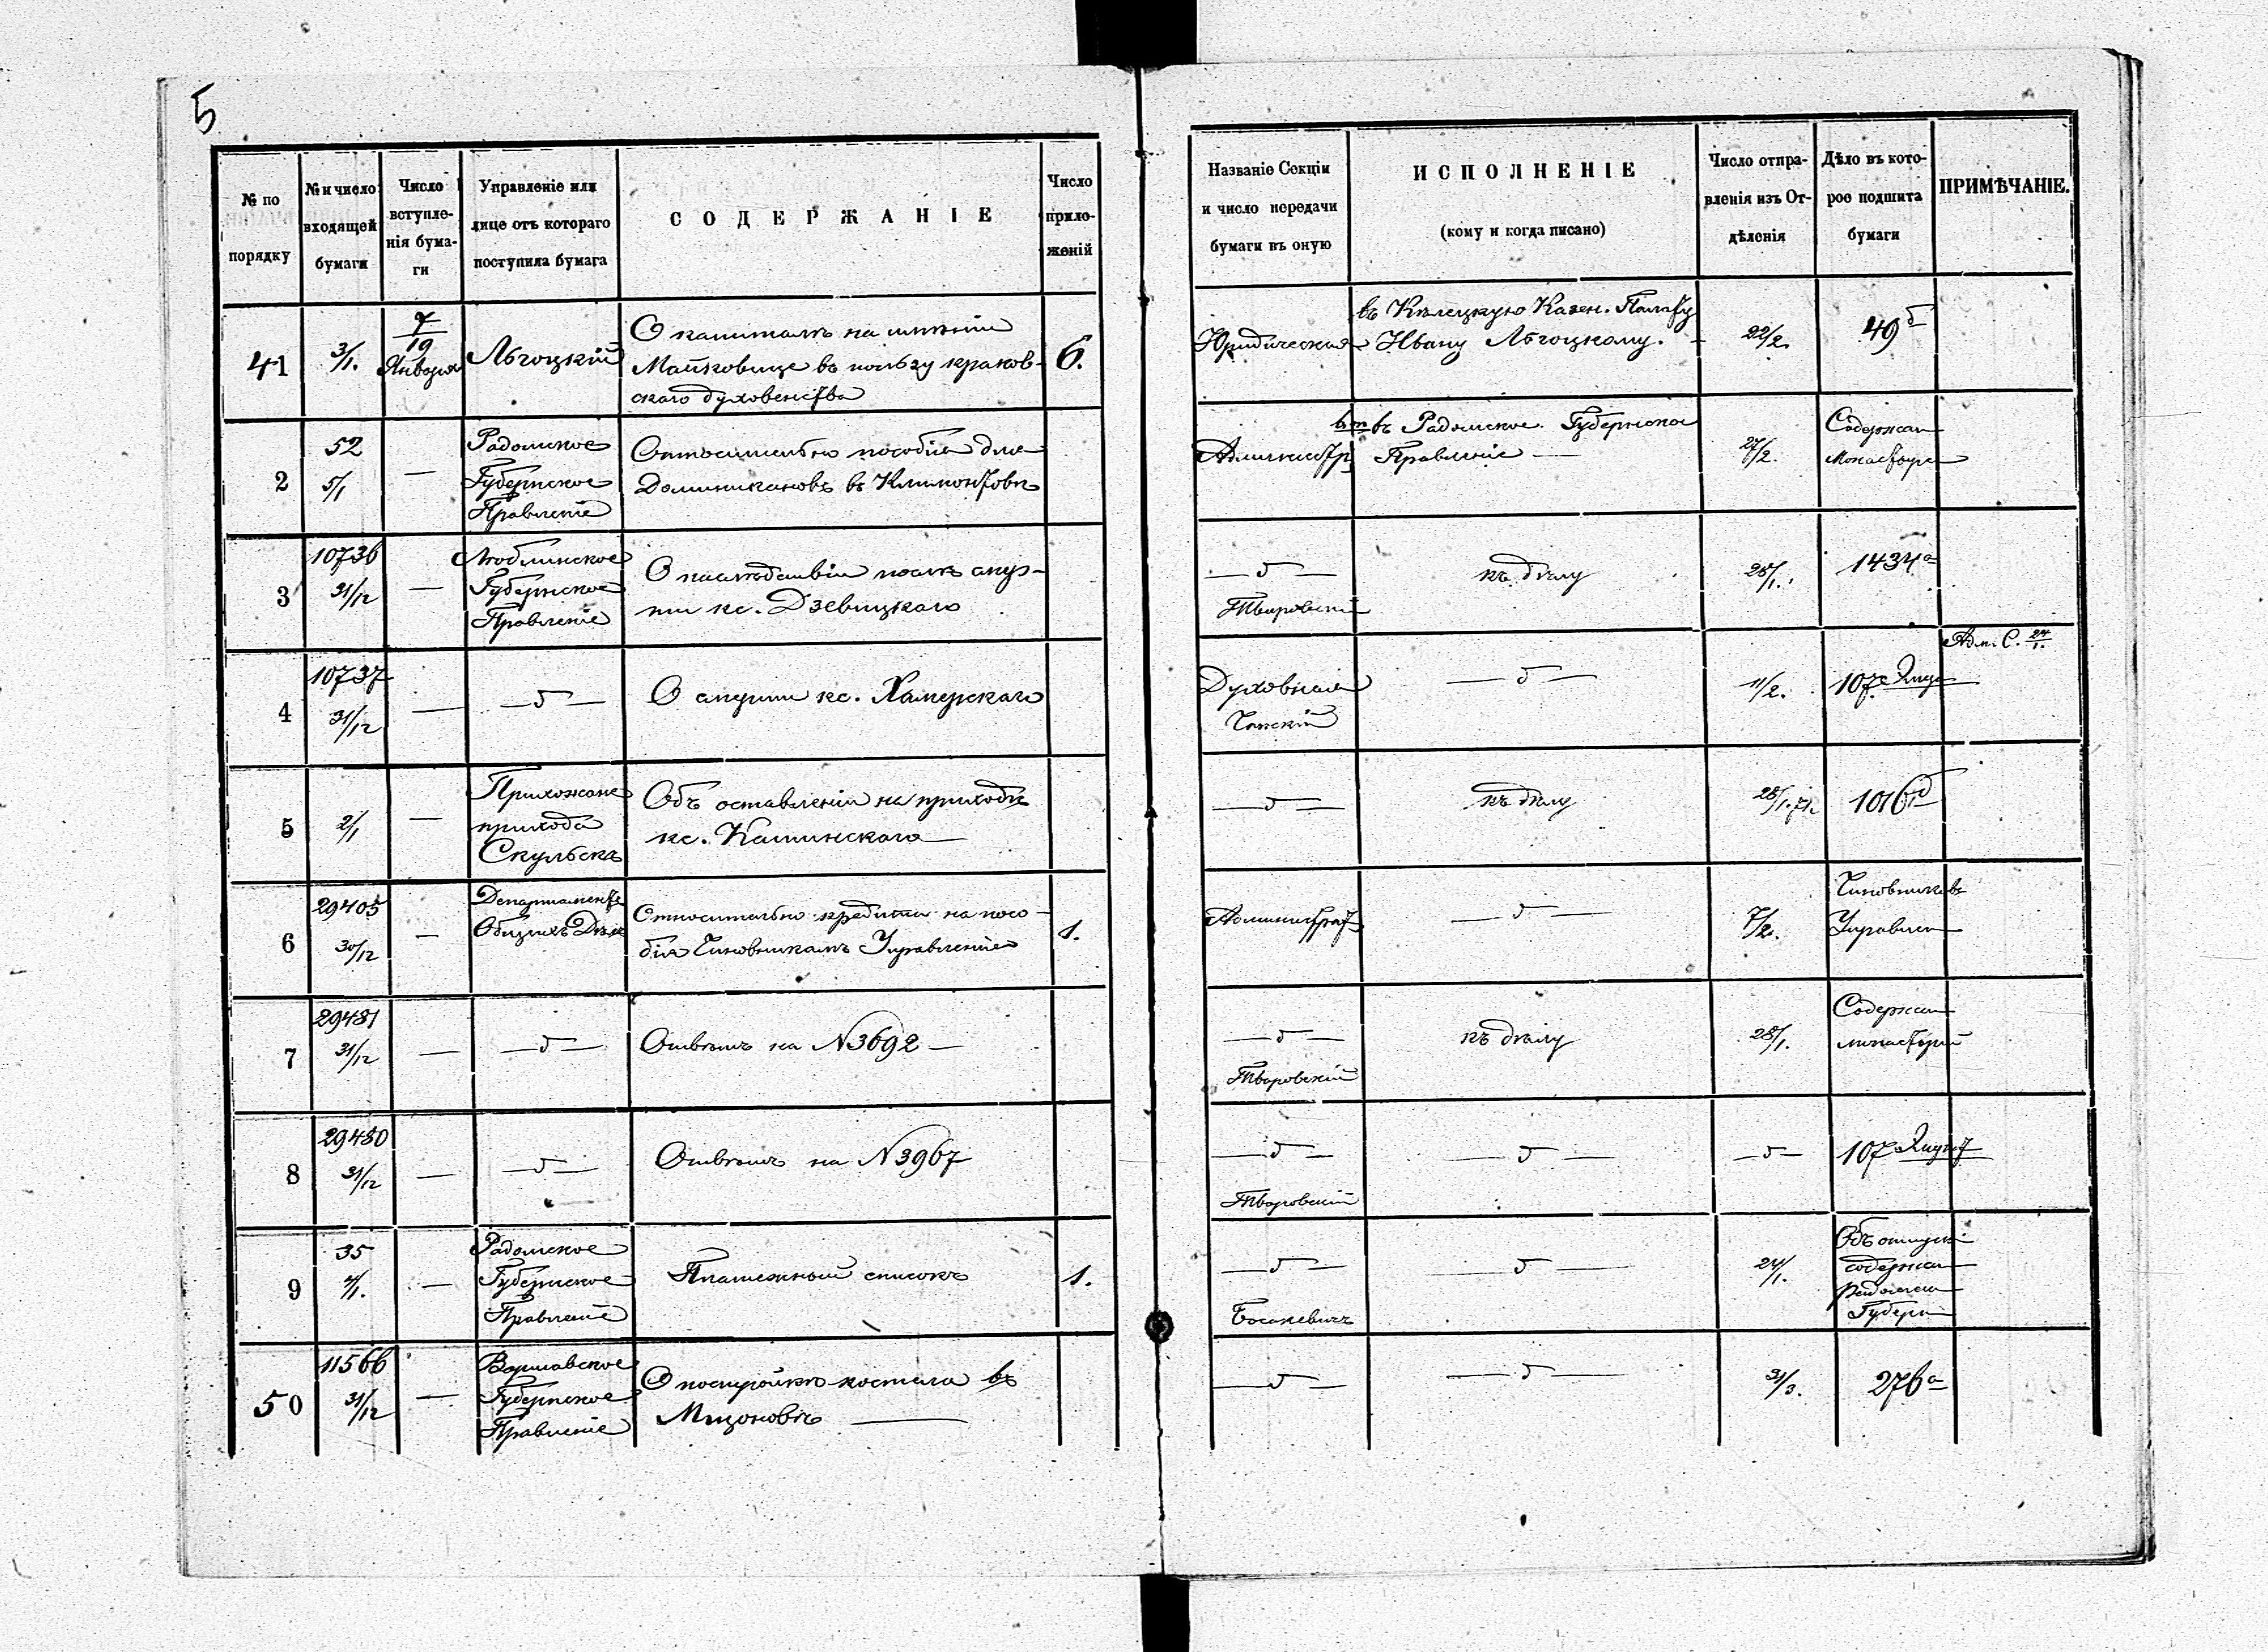 5
№ по порядку
№ и число входящей бумаги
Число вступленія бумаги
Управленіе или лице отъ котораго поступила бумага
СОДЕРЖАНІЕ
Число приложеній
Названіе Секціи и число передачи бумаги въ оную
ИСПОЛНЕНІЕ
(кому и когда писано)
Число отправленія изъ Отдѣленія
Дѣло въ которое подшита бумаги
ПРИМѢЧАНІЕ.
41
3/1.
7/19 Января
Льгоцкій
О капиталѣ на имѣніи
Майковице въ пользу краков-
скаго духовенства
6.
Юридическая
въ Кѣлецкую Казен. Палату
Ивану Льгоцкому.
22/2.
49 б
2
52
5/1
—
Радомское
Губернское
Правленіе
Относительно пособія для
Доминикановъ въ Климонтовѣ
Администр.
въ Радомское Губернское
Правленіе —
27/2.
Содержан
Монастыре
3
10736
31/12
—
Люблинское
Губернское
Правленіе
О наслѣдствіи послѣ
кс. Дзевицкаго
— д —
Тваровскій
къ дѣлу
28/1.
1434 а
4
10737
31/12
—
— д —
О смерти кс. Хамерскаго
Духовная
— д —
11/2.
107
Адм. С. 24/1.
5
2/1
—
Прихожане
прихода
Скульскъ
Объ оставленіи на приходѣ
кс. Калинскаго
— д —
къ дѣлу
28/1.71.
1016 д
6
29405
30/12
—
Департаментъ
Общихъ Дѣлъ
Относительно кредита на посо-
бія Чиновникамъ Управленія
1.
Администрат
— д —
7/2.
Чиновниковъ
Управлен
7
29481
31/12
—
— д —
Отвѣтъ на № 3692 —
— д —
Тваровскій
къ дѣлу
28/1.
Содержан
монастырей
8
29480
31/12
—
— д —
Отвѣтъ на № 3967
— д —
Тваровскій
— д —
— д —
107
9
35
4/1.
—
Радомское
Губернское
Правленіе
Платежный списокъ
1.
— д —
— д —
24/1.
Объ отпускѣ
содержан
Радомск
Губерн
50
11566
31/12
—
Варшавское
Губернское
Правленіе
О постройкѣ костела въ
Мщоновѣ —
— д —
— д —
31/3.
276 а